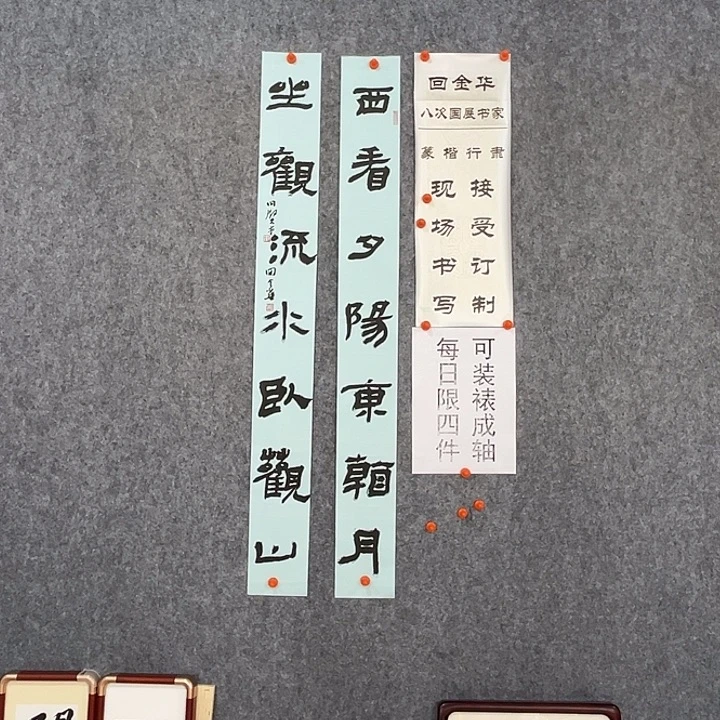 回金华
八次国展书家
篆楷行
接受订制
现场书写
可装裱成轴
每日限四件
西看夕陽東朝月
坐觀流水臥觀山